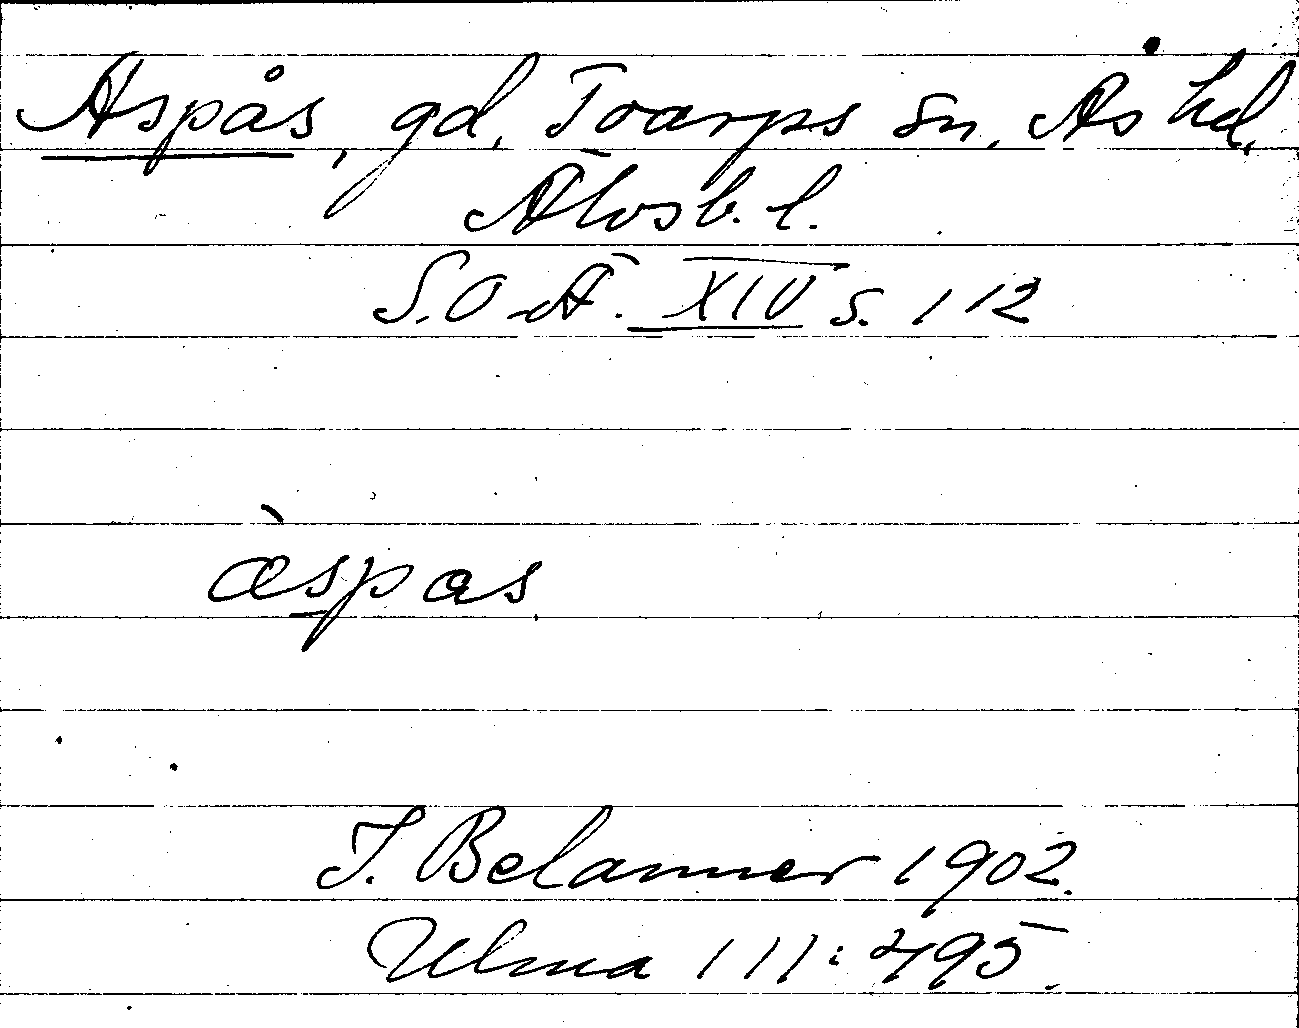 Aspås, gd, Toarps sn, Ås hd,
Älvsb. l.
S.O.Ä. XIV s. 112
æ̀spas
J. Belanner 1902.
Ulma 111:495.